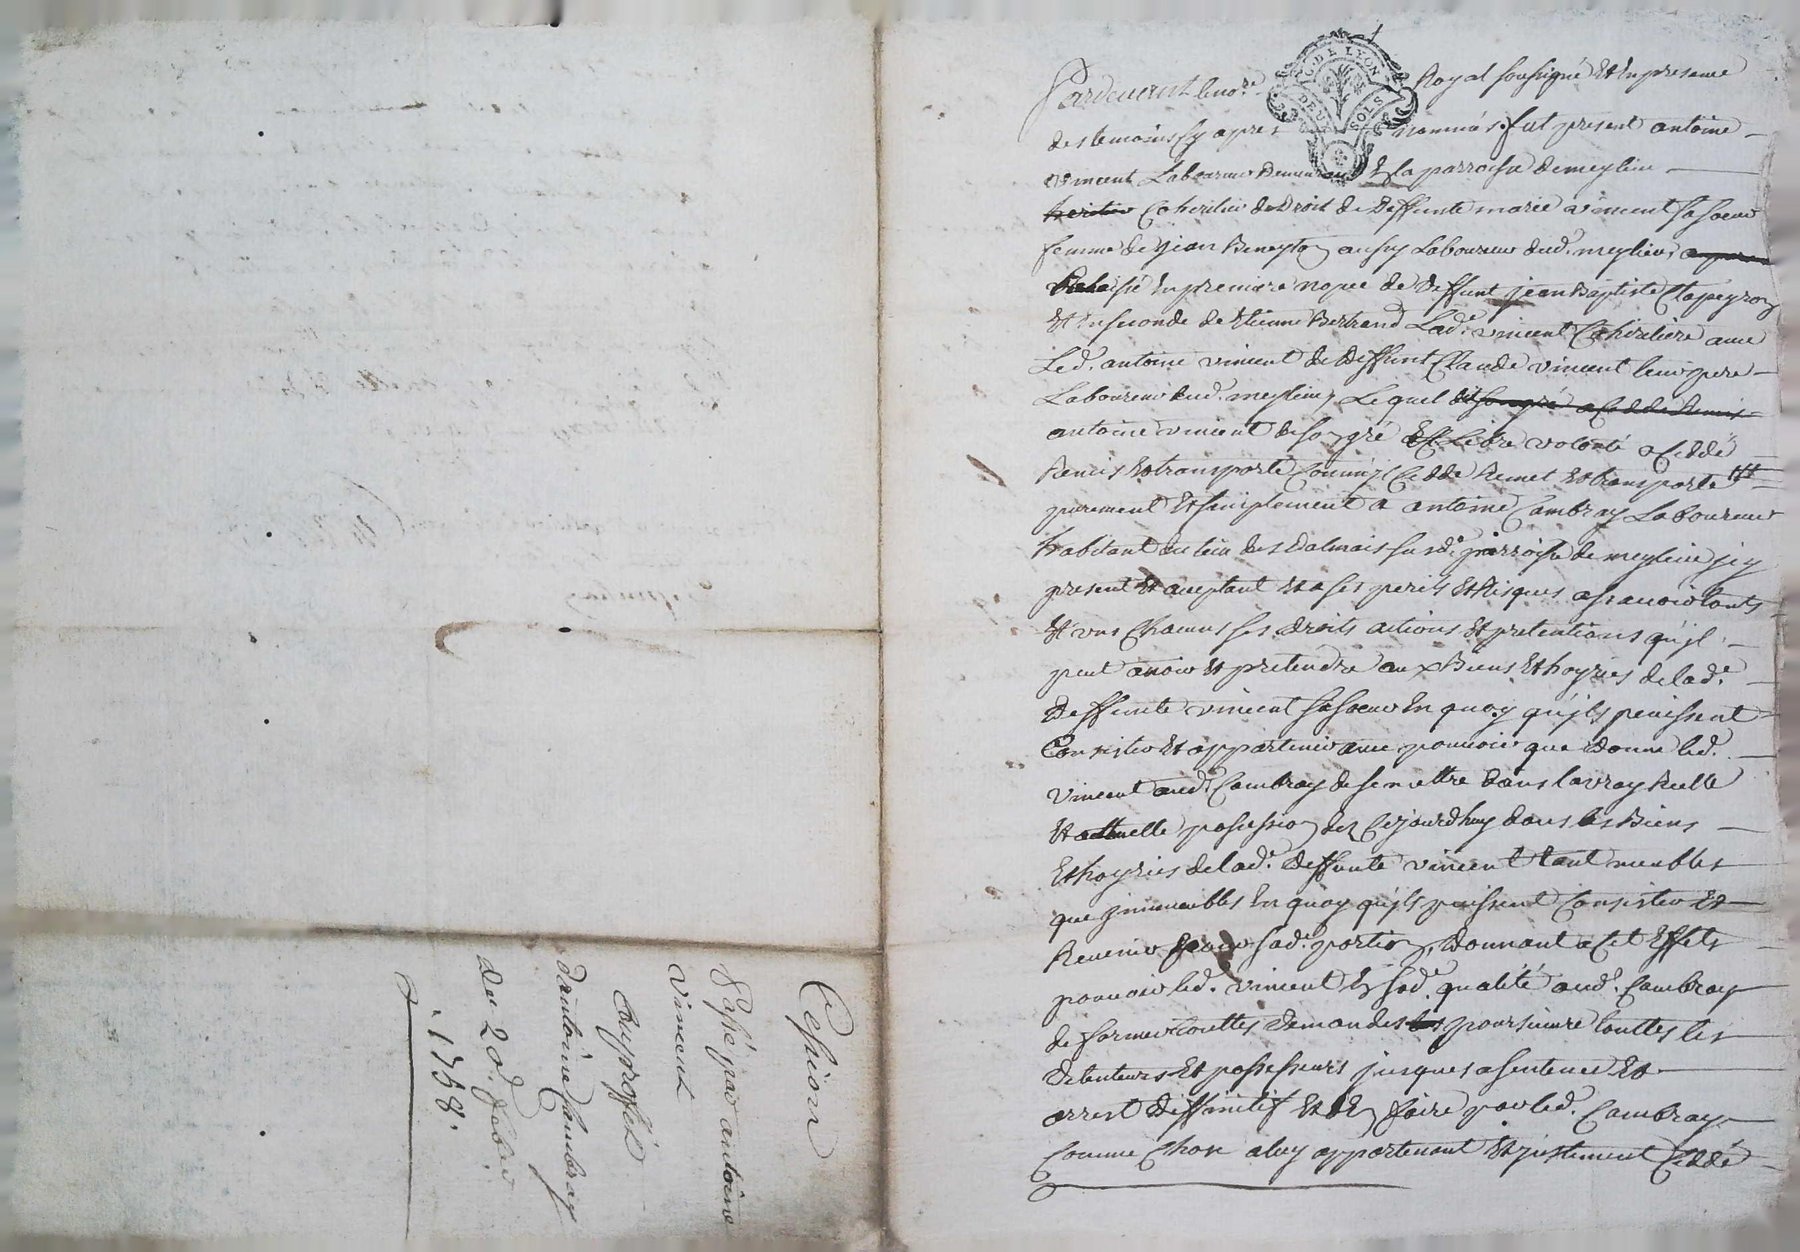 Cession
Passé par antoine
vincent
au proffit
d'antoine Cambray
du 20e. febvr
.1758.
G. DE LYON
DEUX SOLS
Pardevant le nore. Royal soussigné Et En presence
des temoins cy apres nommés. fut present antoine
vincent Laboureur demeurant En la parroisse de meylieu
heritier Coheritier de Droit de Deffunte marie vincent sa soeur
femme de jean Beneyton aussy Laboureur dud. meylieu,
En premiere nopce de Deffunt jean Baptiste Clapeyron
Et En seconde de Etienne Bertrand Lade. vincent Coheritiere avec
Led. antoine vincent de Deffunt Claude vincent leur pere
Laboureur dud. meylieu, Lequel de son gré a Ceddé Remis
antoine vincent de son gré Et Libre volonté a Ceddé
Remis Et transporté Comm'jl Cedde Remet Et transporte
purement Et simplement a antoine Cambray Laboureur
habitant au lieu des Dalmais susde. parroisse de meylieu jcy
present Et aceptant Et a ses perils Et Risques a sçavoir touts
Et uns Chacuns ses droits actions Et pretentions qu'jl
peut avoir Et pretendre aux Biens Et hoyries de lade.
Deffunte vincent sa soeur En quoy qu'jls peuissent
Consister Et appartenir avec pouvoir que donne led.
vincent aud. Cambray de se mettre dans la vray Reelle
Et actuelle possession dez Cejourdhuy dans les Biens
Et hoyries de lade. deffunte vincent tant meubles
que jmmeubles En quoy qu'jls puissent Consister Et
Revenir pour sade. portion, Donnant a Cet Effets
pouvoir led. vincent En sade. qualité aud. Cambray
de former touttes demandes poursuivre touttes les
detenteurs Et possesseurs jusques a sentence Et
arrest diffinitif Et d'En faire par led. Cambray
Comme Chose a luy appartenant Et justement Ceddé